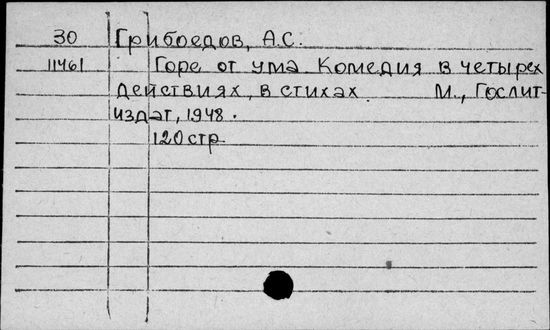 30 Грибоедов, А.С.
11461 Горе от ума. Комедия в четырех
действиях, в стихах. М., Гослит-
издат, 1948.
120 стр.